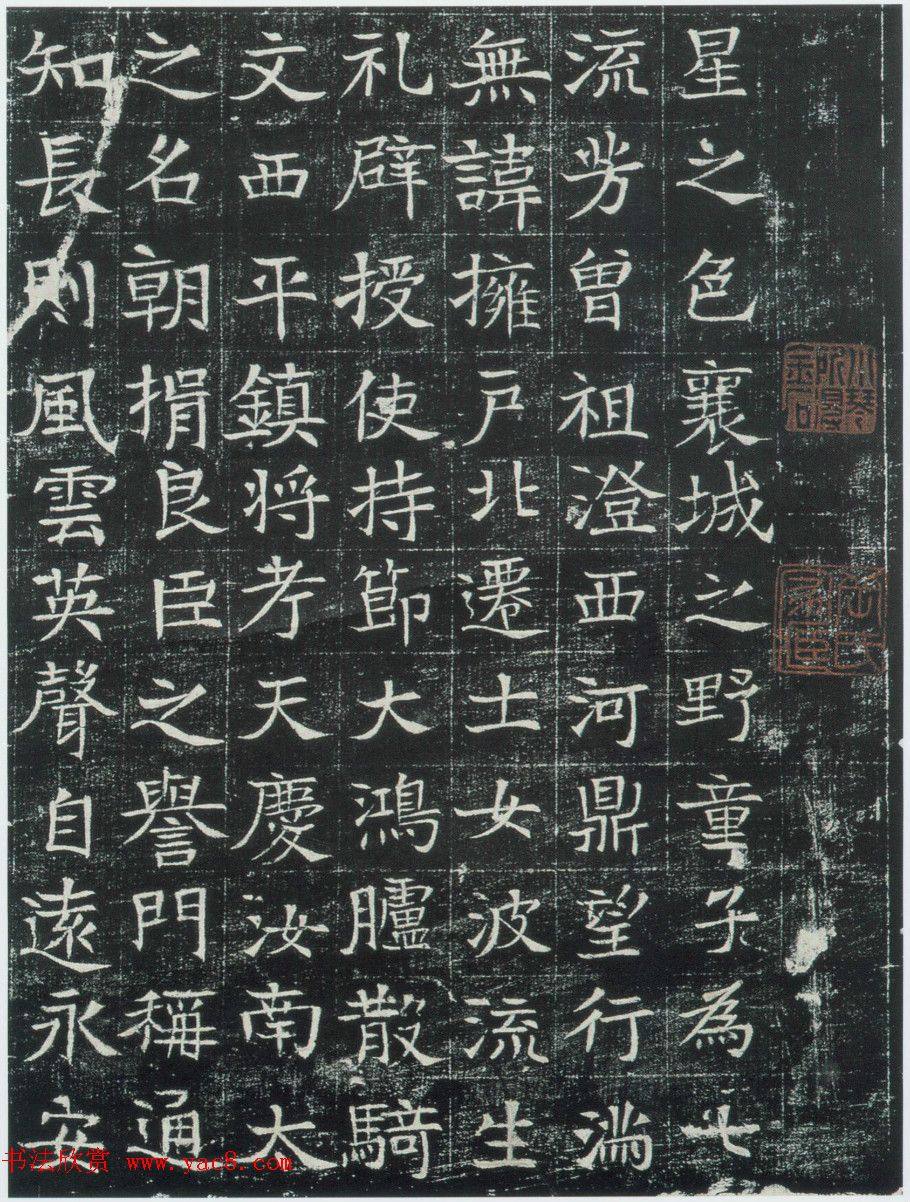 星之色襄城之野童子為七
流芳曽祖澄西河鼎望行
無諱擁戶北遷士女波流生
礼辟授使持節大鴻臚散騎
文西平鎮将考天慶汝南大
之名朝捐良臣之譽門稱通
知長則風雲英聲自遠永安
书法欣赏 www.yac8.com